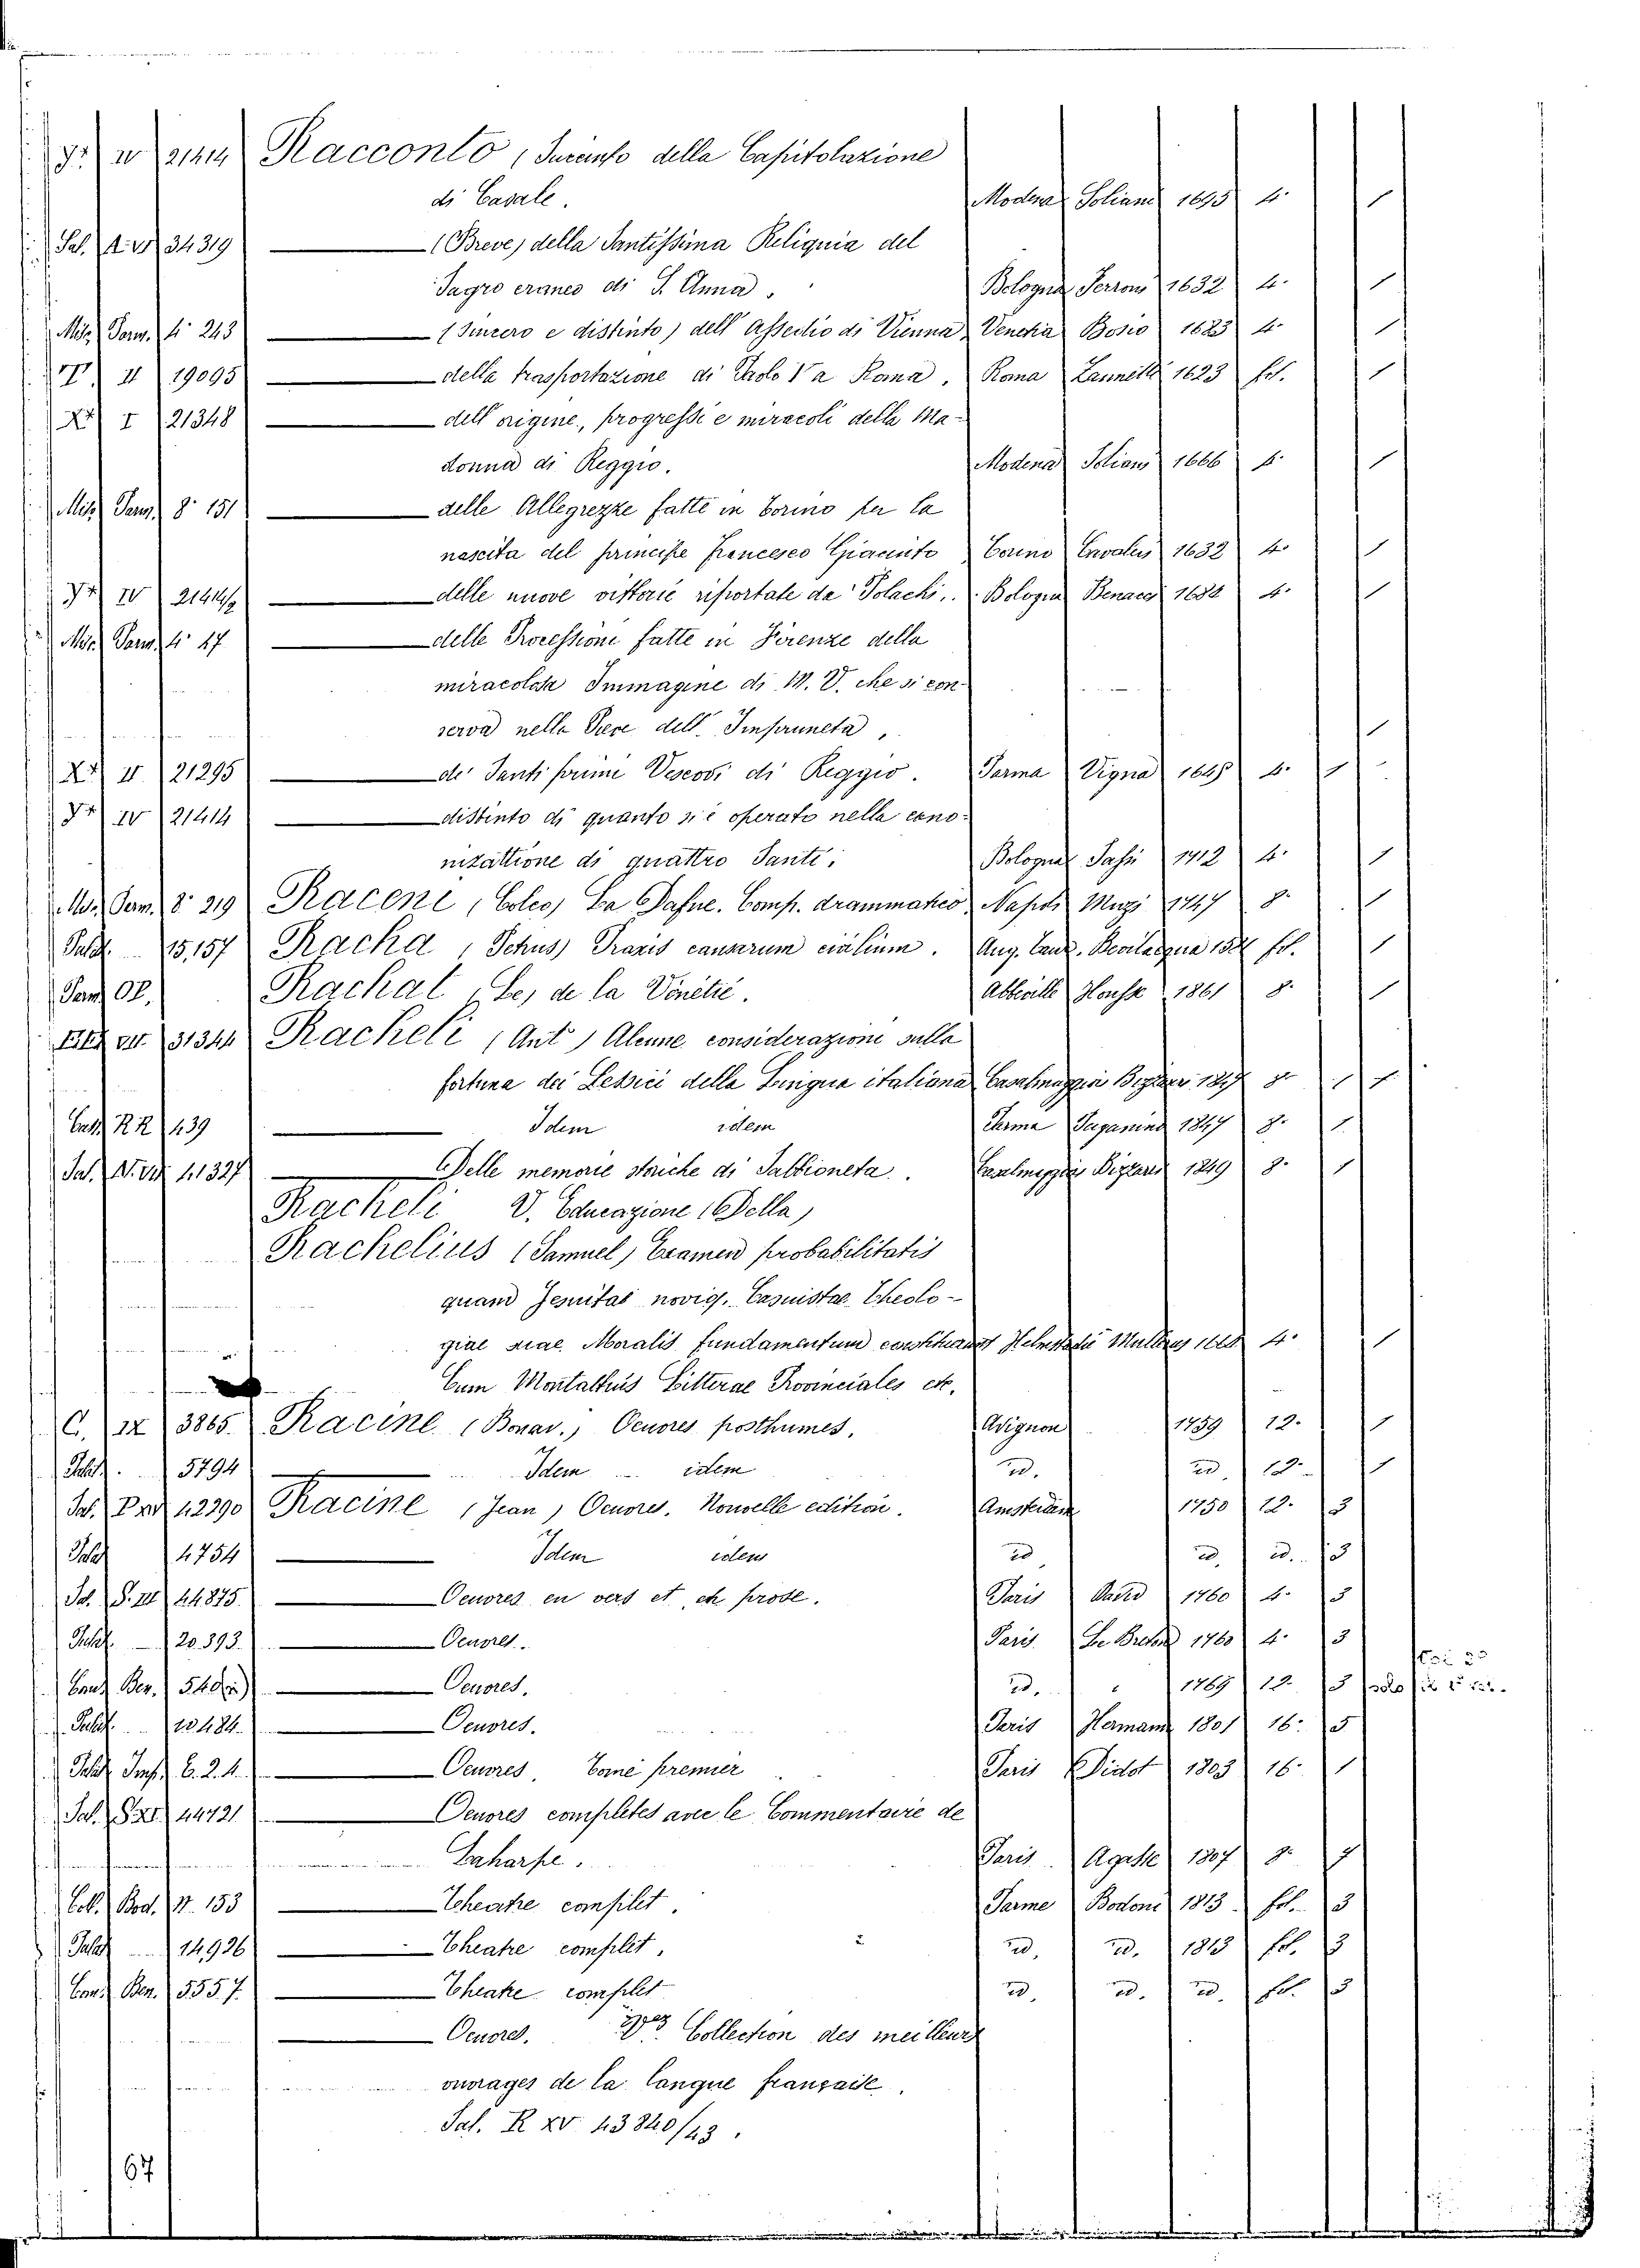 IV 21414 Racconto (Sucinto della Capitolazione
di Casale. Modena Soliani 1695 4. 1
Sal. 34319 — (Breve) della Santissima Reliquia del
Sagro craneo di S. Anna. Bologna Ferroni 1632 4. 1
Misc. Parm. 4° 243 — (Sincero e distinto) dell' Assedio di Vienna, Venetia Bosio 1683 4. 1
II 19095 — della trasportazione di Paolo V a Roma. Roma Zannetti 1623 fol. 1
I 21348 — dell' origine, progressi e miracoli della Ma-
donna di Reggio. Modena Soliani 1666 1
Misc. Parm. 8° 151 — delle Allegrezze fatte in Torino per la
nascita del principe Francesco Giacinto Torino Cavaleri 1632 4. 1
IV 21414/2 — delle nuove vittorie riportate da' Polachi. Bologna Benacci 4. 1
Misc. Parm. 4° 47 — delle Processioni fatte in Firenze della
miracolosa Immagine di M. V. che si con-
serva nella Pieve dell' Impruneta, 1
II 21295 — de' Santi primi Vescovi di Reggio. Parma Vigna 1648 1
IV 21414 — distinto di quanto si è operato nella cano-
nizattione di quattro Santi. Bologna 1712 4. 1
Misc. Parm. 8° 219 Raceni (Coleo) La Dafne. Comp. drammatico Napoli Muzi 8. 1
Palat. 15,157 Racha (Petrus) Praxis causarum civilium. Aug. Taur. Bevilacqua fol. 1
Parm. OP. Rachat (Le) de la Vénétie. Abbeville Housse 1861 8. 1
31344 Racheli (Ant.) Alcune considerazioni sulla
fortuna dei Lessici della Lingua italiana Casalmaggiore Bizzarri 8. 1
439 — Idem idem Parma Paganino 1847 8. 1
Sal. 41327 — Delle memorie storiche di Sabbioneta. Casalmaggiore Bizzarri 1849 8. 1
Racheli V. Educazione (Della)
Rachelius (Samuel) Examen probabilitatis
quam Jesuitae novig. Casuistae Theolo-
giae suae Moralis fundamentum constituunt Helmstadii Mullerus 4. 1
Cum Montaltius Litterae Provinciales etc.
C. IX 3865. Racine (Bonav.) Oeuvres posthumes. Avignon 1759 12. 1
Palat. 5794 — Idem idem id. id. 12. 1
Sal. 42390 Racine (Jean) Oeuvres. Nouvelle edition. Amsterdam 1750 12. 3
Palat 4754 — Idem idem id id. id. 3
Sal. S. III 44875. — Oeuvres en vers et en prose. Paris David 1760 4. 3
Palat. 20.393. — Oeuvres. Paris Le Breton 1760 4. 3
Ber. 540 — Oeuvres. id. " 1769 12. 3
Palat. 10484. — Oeuvres. Paris Hermann 1801 16. 5
Palat. Imp. C. 2. 4. — Oeuvres. Tome premier Paris Didot 1803 16. 1
Sal. 44721 — Oeuvres completes avec le Commentaire de
Laharpe. Paris Agasse 1807 8. 7
Coll. Bod. N. 153 — Theatre complet. Parme Bodoni 1813 fol. 3
Palat 14,926 — Theatre complet. id. id. 1813 fol. 3
Ben. 5557. — Theatre complet id. id. id. fol. 3
— Oeuvres. Collection des meilleurs
ouvrages de la langue française.
Sal. R XV 43840/43.
67